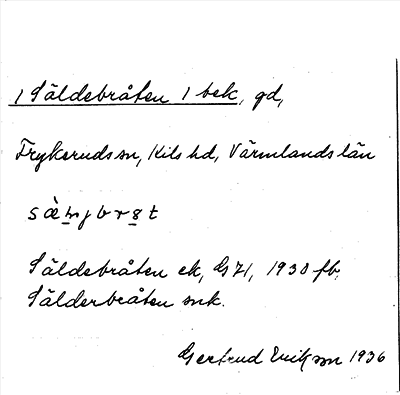 1 Säldebråten 1 bek, gd,
Frykeruds sn, Kils hd, Värmlands län
Säldebråten ek, G 71, 1930 fb.
Sälderbråten snk.
Gertrud Erikson 1936